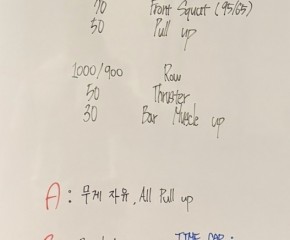 70 Front Squat (95/65)
50 Pull up
1000/900 Row
50 Thruster
30 Bar Muscle up
A : 무게 자유, All Pull up
TIME CAP :